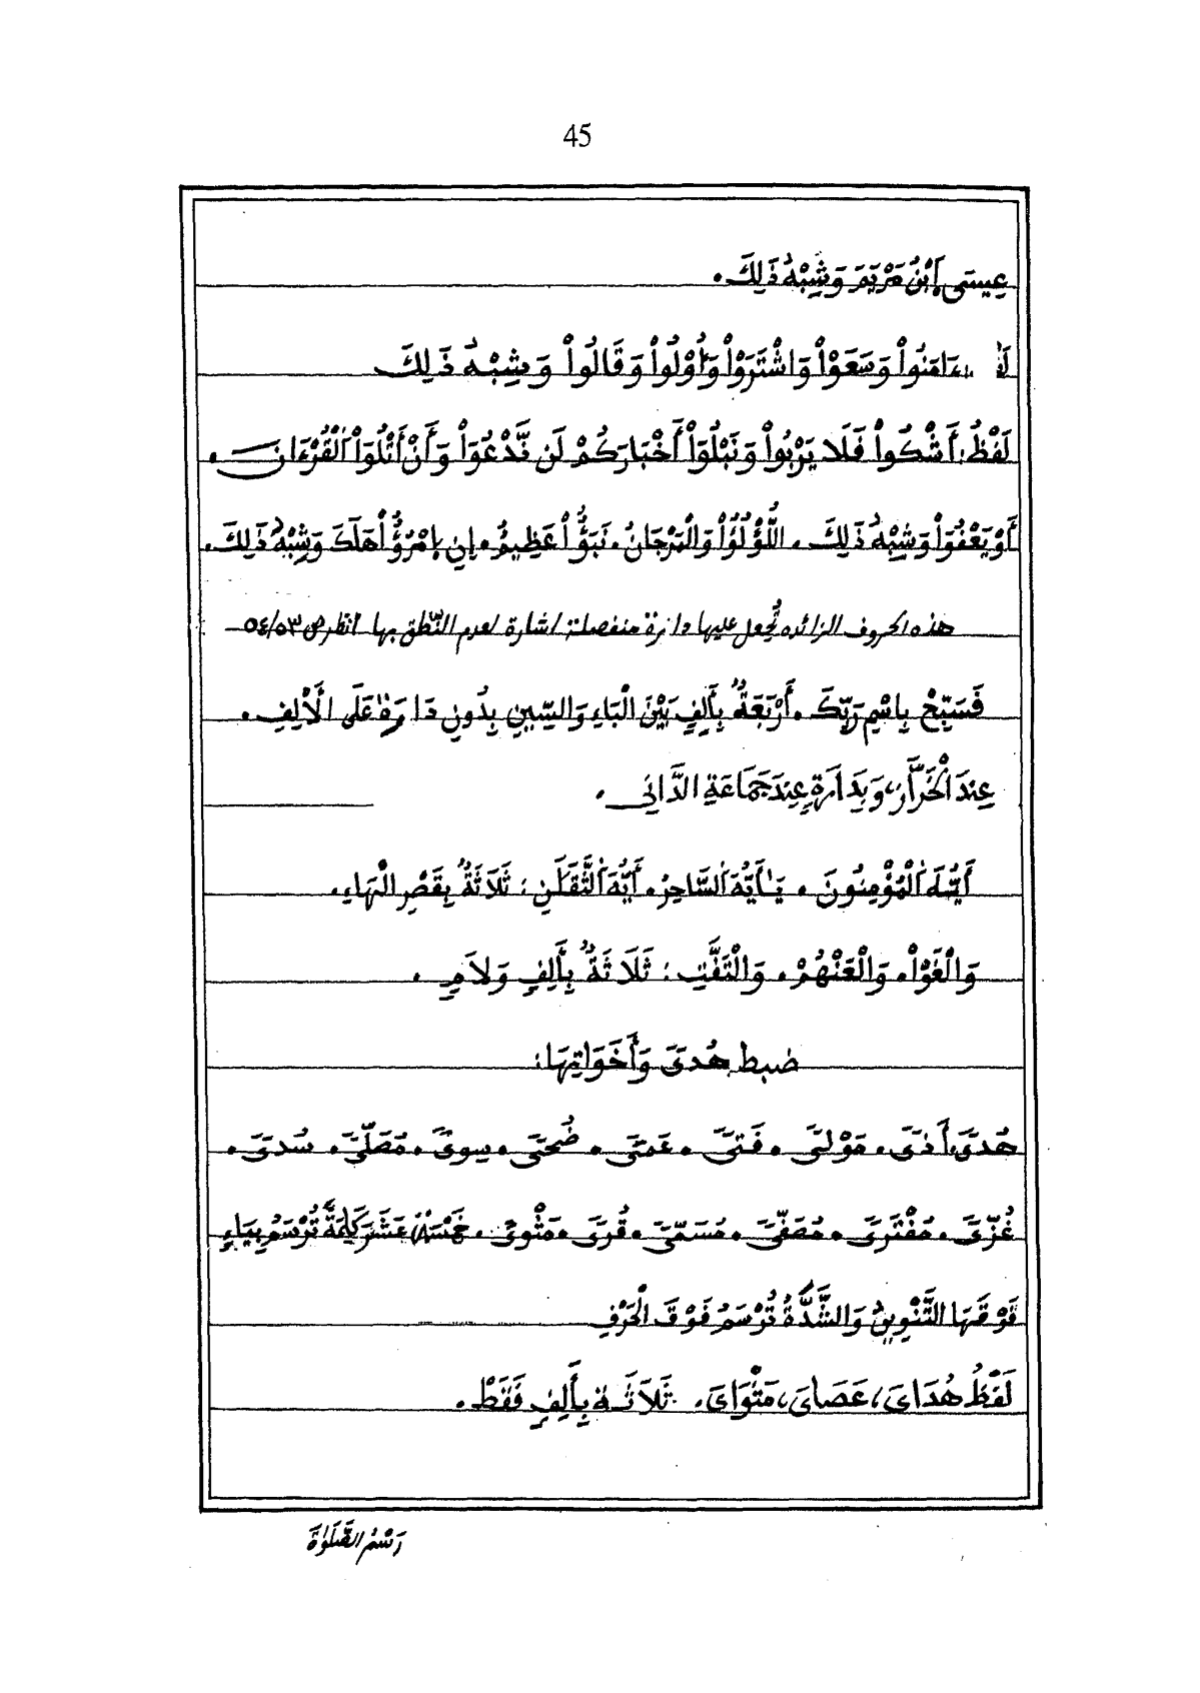 45
عِيسَى اَبْنُ مَرْيَمَ وَشِبْهُ ذَلِكَ.
ءَامَنُواْ وَسَعَوْاْ وَاشْتَرَوْاْ وَأُوْلُواْ وَقَالُواْ وَشِبْهُ ذَلِكَ
لَفْظُ: أَشْكُواْ فَلَا يَرْبُواْ وَنَبْلُوَاْ أَخْبَارَكُمْ لَن نَّدْعُوَاْ وَأَنْ أَتْلُوَاْ الْقُرْءَانَ.
أَوْ يَعْفُوَاْ وَشِبْهُ ذَلِكَ. اللُّؤْلُؤُاْ وَالْمَرْجَانُ. نَبَؤٌاْ عَظِيمٌ. إِنِ امْرُؤٌاْ هَلَكَ وَشِبْهُ ذَلِكَ.
هذه الحروف الزائده تُجعل عليها دائرة منفصلة اشارة لعدم النّطق بها انظر ص ٥٤/٥٣
فَسَبِّحْ بِاسْمِ رَبِّكَ. أَرْبَعَةٌ بِأَلِفٍ بَيْنَ الْبَاءِ وَالسِّينِ بِدُونِ دَارَةٍ عَلَى الْأَلِفِ.
عِندَ الْخَرَّازِ، وَبِدَارَةٍ عِندَ جَمَاعَةِ الدَّانِي.
أَيُّهَ الْمُؤْمِنُونَ. يَاأَيُّهَ السَّاحِرُ. أَيُّهَ الثَّقَلَنِ: ثَلَاثَةٌ بِقَصْرِ الْهَاءِ.
وَالْغَوْاْ. وَالْعَنْهُمْ. وَالْتَفَّتِ: ثَلَاثَةٌ بِأَلِفٍ وَلَامٍ.
ضبط هُدىً وَأَخَوَاتِهَا:
هُدىً، أَذىً. مَوْلىً. فَتىً. عَمىً. ضُحىً. سِوىً. مُصَلّىً. سُدىً.
غُزّىً. مُفْتَرىً. مُصَفّىً. مُسَمّىً. قُرىً. مَثْوىً. خَمْسَةَ عَشَرَ كَلِمَةً تُرْسَمُ بِيَاءٍ
فَوْقَهَا التَّنْوِينُ وَالشَّدَّةُ تُرْسَمُ فَوْقَ الْحَرْفِ
لَفْظُ هُدَايَ، عَصَايَ، مَثْوَايَ. ثَلَاثَةٌ بِأَلِفٍ فَقَطْ.
رَسْمُ الصَّلَوٰةَ